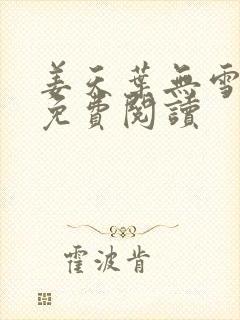 姜天葉無雪
免費閱讀
霍波肯